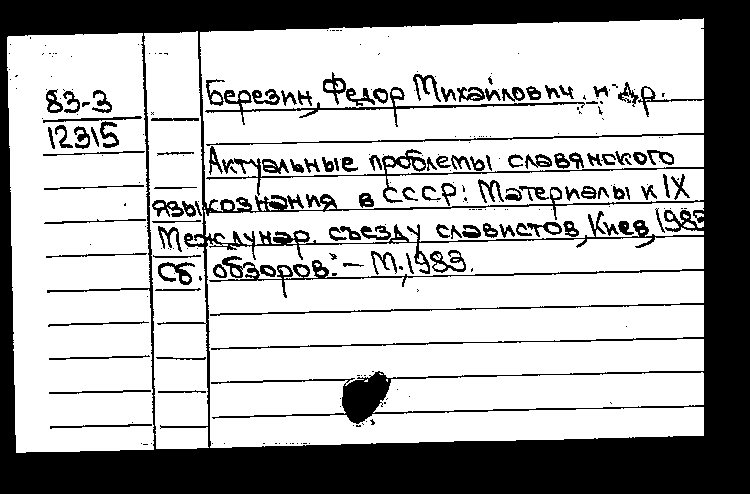 83-3
12315
Березин, Федор Михайлович и др.
Актуальные проблемы славянского
языкознания в СССР: Материалы к IX
Междунар. съезду славистов, Киев, 1983
Сб. обзоров. – М., 1983.